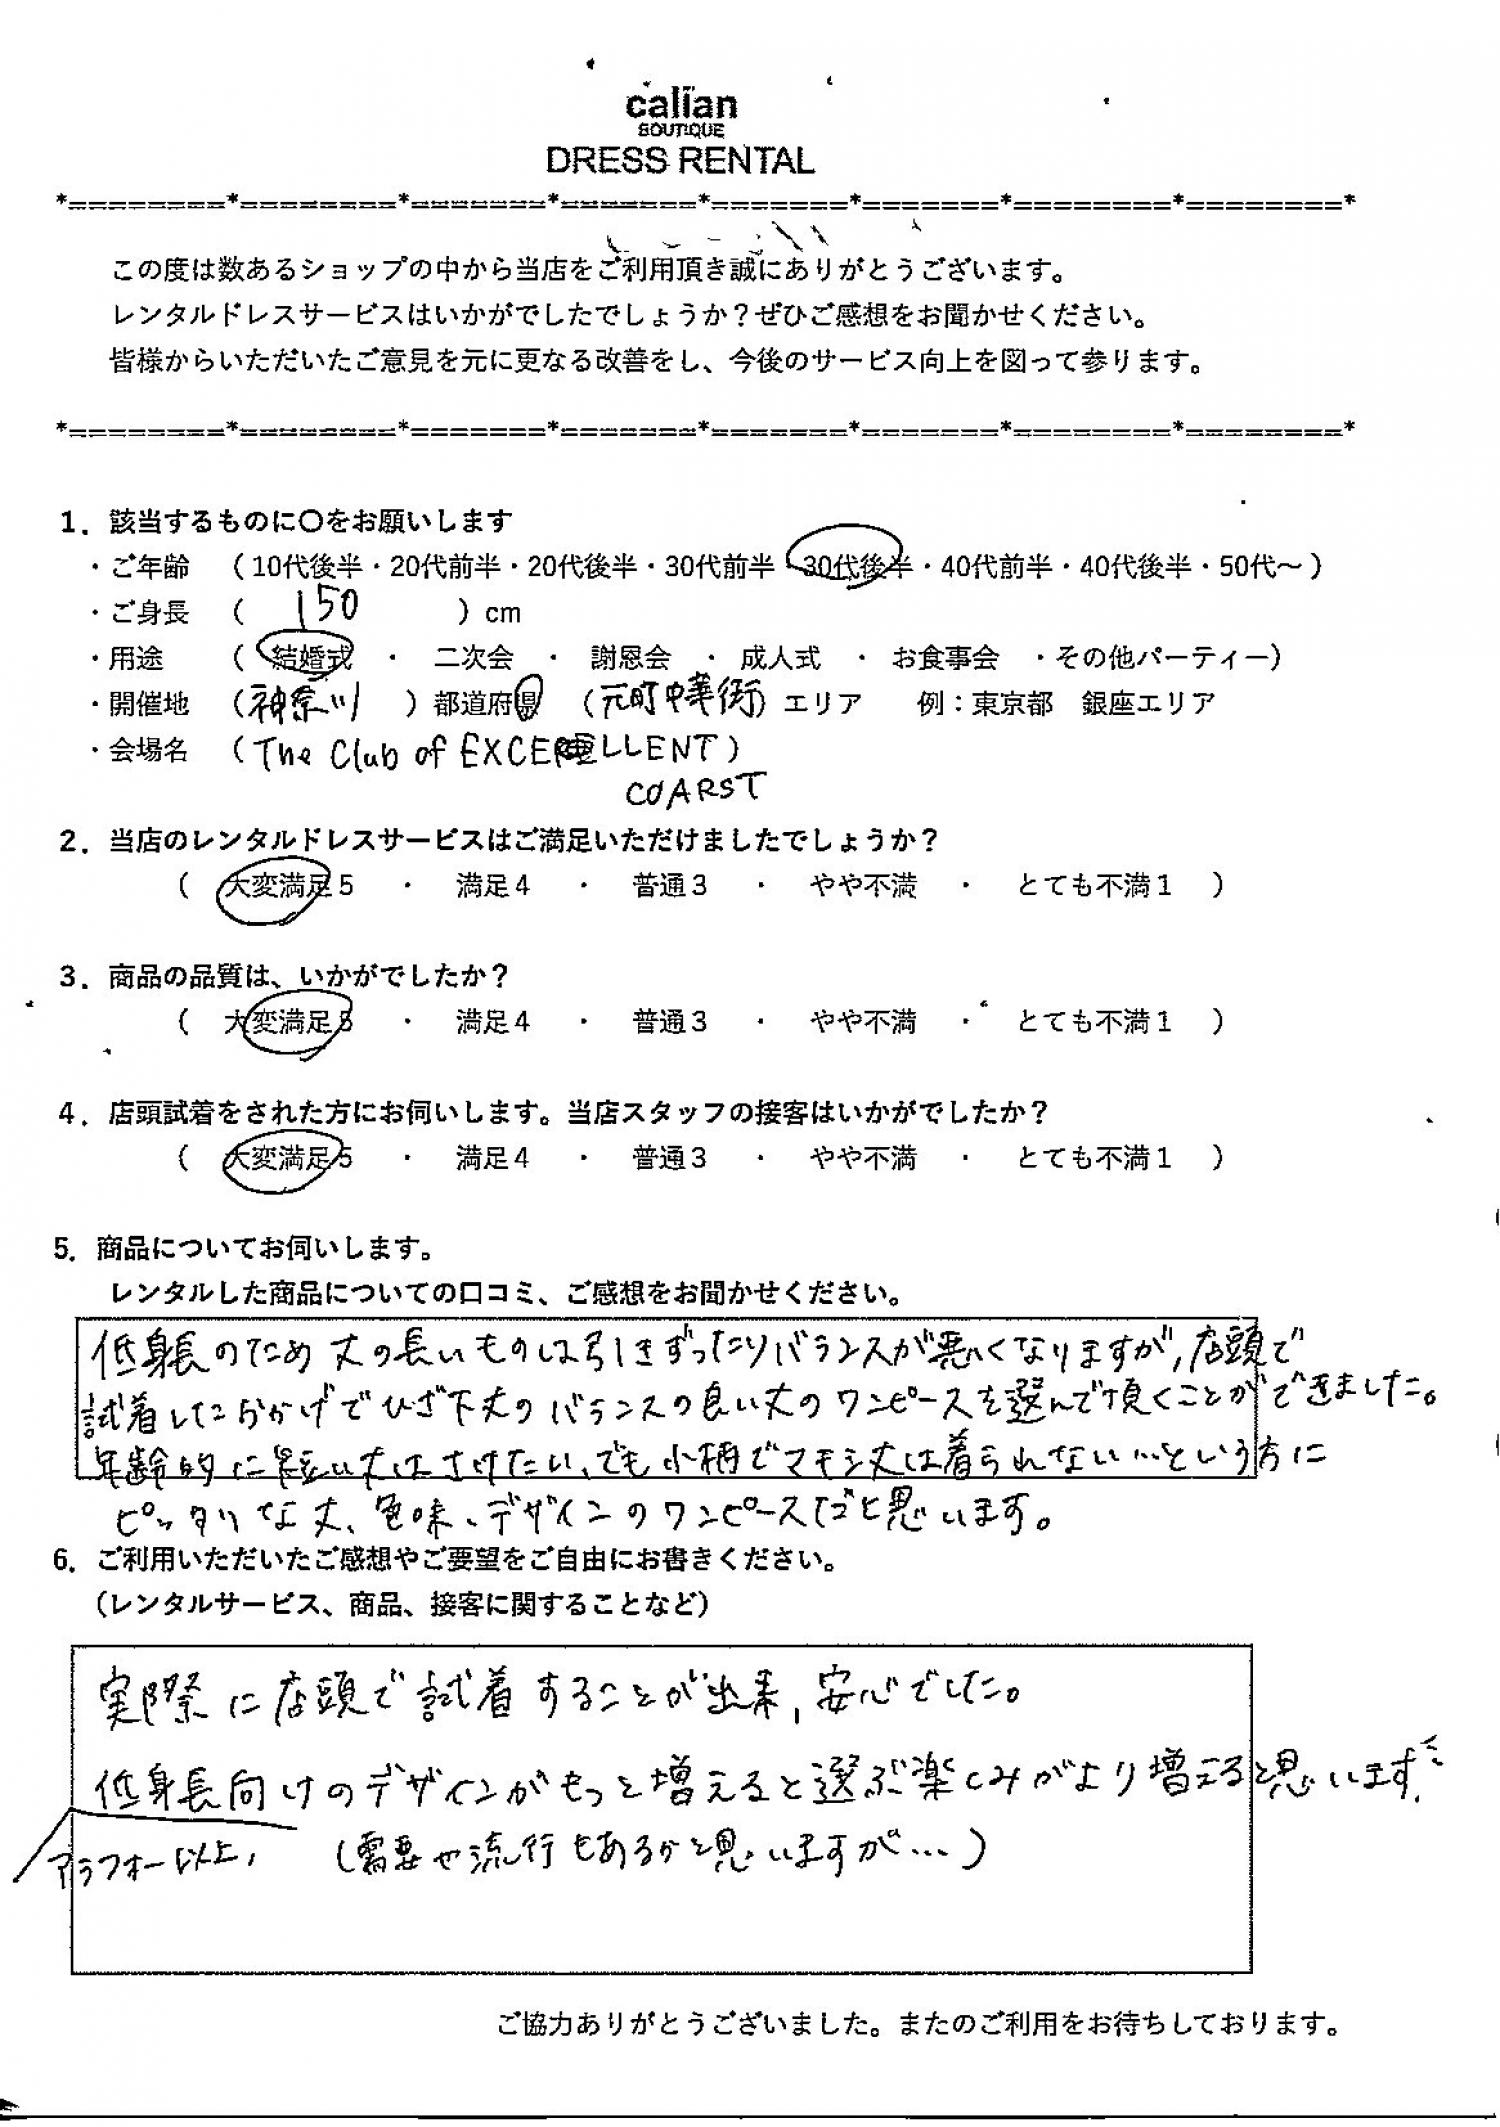 calian
BOUTIQUE
DRESS RENTAL
*========*========*=======*=======*=======*=======*========*========*
この度は数あるショップの中から当店をご利用頂き誠にありがとうございます。
レンタルドレスサービスはいかがでしたでしょうか？ぜひご感想をお聞かせください。
皆様からいただいたご意見を元に更なる改善をし、今後のサービス向上を図って参ります。
*========*========*=======*=======*=======*=======*========*========*
1．該当するものに〇をお願いします
・ご年齢 （10代後半・20代前半・20代後半・30代前半・30代後半・40代前半・40代後半・50代～）
・ご身長 （ 150 ）cm
・用途 （ 結婚式 ・ 二次会 ・ 謝恩会 ・ 成人式 ・ お食事会 ・その他パーティー）
・開催地 （神奈川 ）都道府県 （元町中華街）エリア 例：東京都 銀座エリア
・会場名 （The Club of EXCELLENT）
COARST
2．当店のレンタルドレスサービスはご満足いただけましたでしょうか？
（ 大変満足5 ・ 満足4 ・ 普通3 ・ やや不満 ・ とても不満1 ）
3．商品の品質は、いかがでしたか？
（ 大変満足5 ・ 満足4 ・ 普通3 ・ やや不満 ・ とても不満1 ）
4．店頭試着をされた方にお伺いします。当店スタッフの接客はいかがでしたか？
（ 大変満足5 ・ 満足4 ・ 普通3 ・ やや不満 ・ とても不満1 ）
5．商品についてお伺いします。
レンタルした商品についての口コミ、ご感想をお聞かせください。
低身長のため丈の長いものは引きずったりバランスが悪くなりますが、店頭で
試着したおかげでひざ下丈のバランスの良い丈のワンピースを選んで頂くことができました。
年齢的に短い丈はさけたい、でも小柄でマキシ丈は着られない…という方に
ピッタリな丈、色味、デザインのワンピースだと思います。
6．ご利用いただいたご感想やご要望をご自由にお書きください。
（レンタルサービス、商品、接客に関することなど）
実際に店頭で試着することが出来、安心でした。
低身長向けのデザインがもっと増えると選ぶ楽しみがより増えると思います。
アラフォー以上、 （需要や流行もあるかと思いますが…）
ご協力ありがとうございました。またのご利用をお待ちしております。